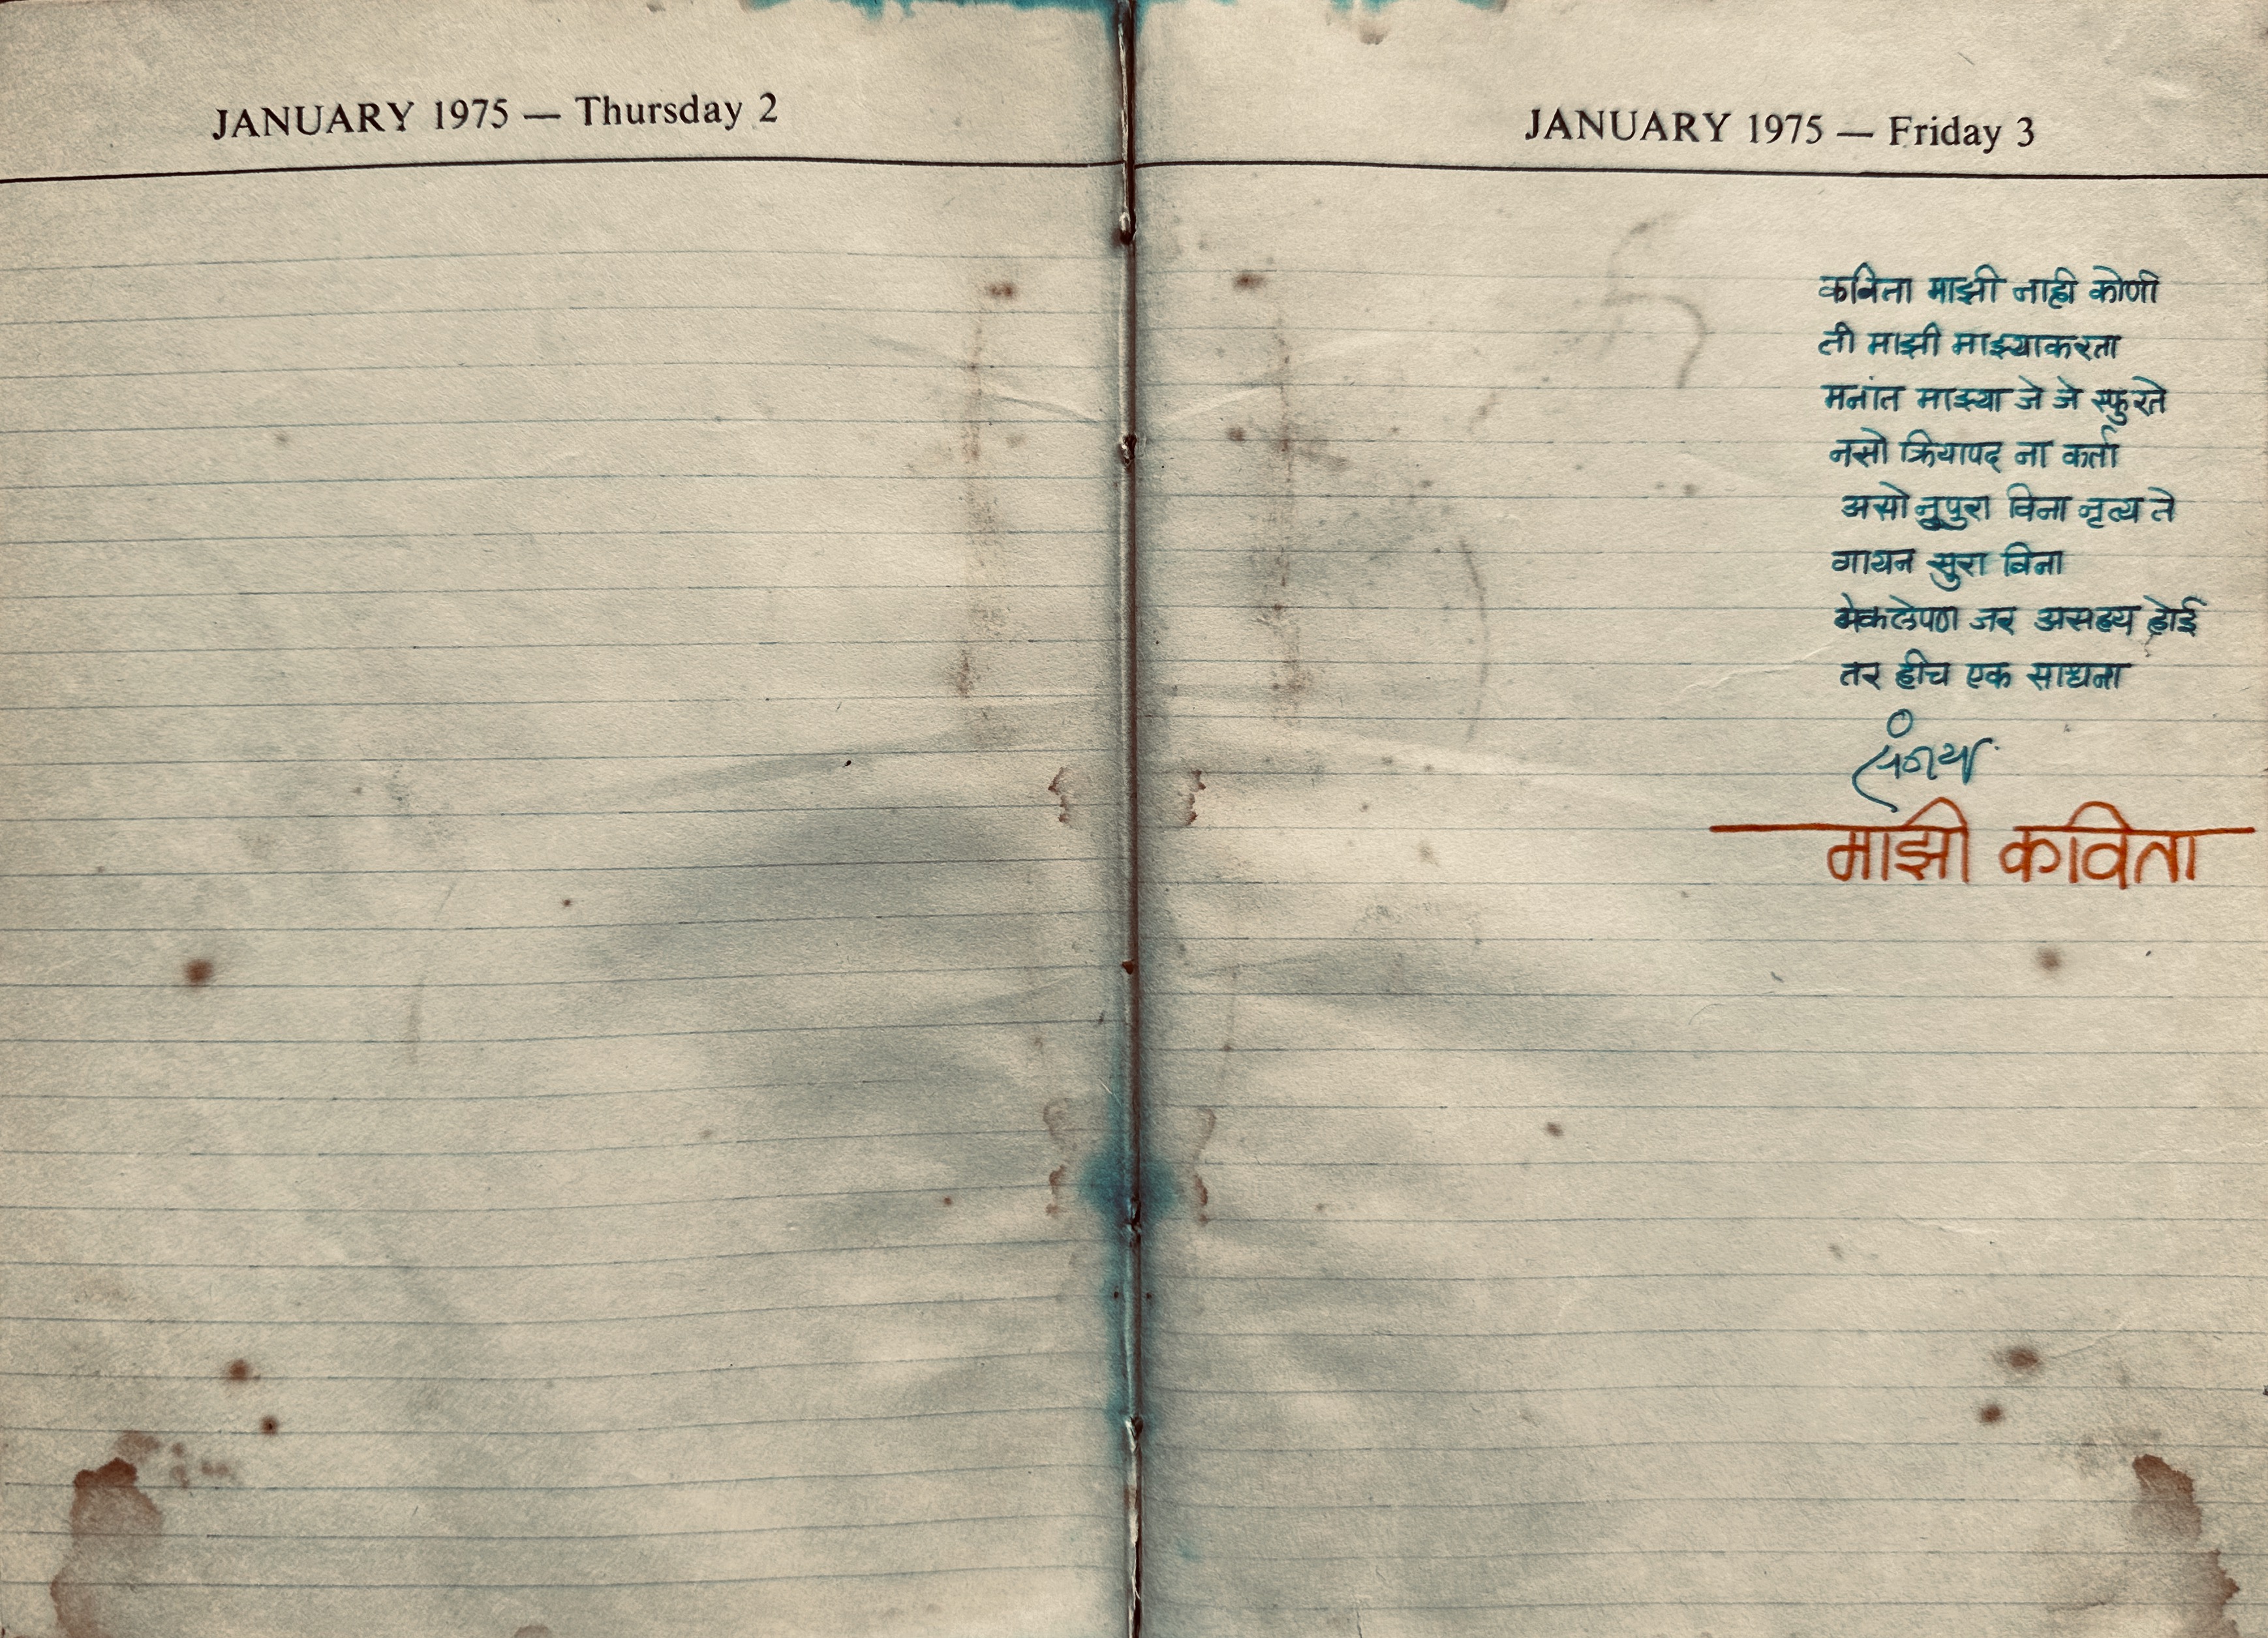 JANUARY 1975 — Thursday 2
JANUARY 1975 — Friday 3
कविता माझी नाही कोणी
ती माझी माझ्याकरता
मनांत माझ्या जे जे स्फुरते
नसो क्रियापद ना कर्ता
असो नुपुरा विना नृत्य ते
गायन सुरा विना
येकलेपण जर असह्य होई
तर हीच एक साधना
माझी कविता